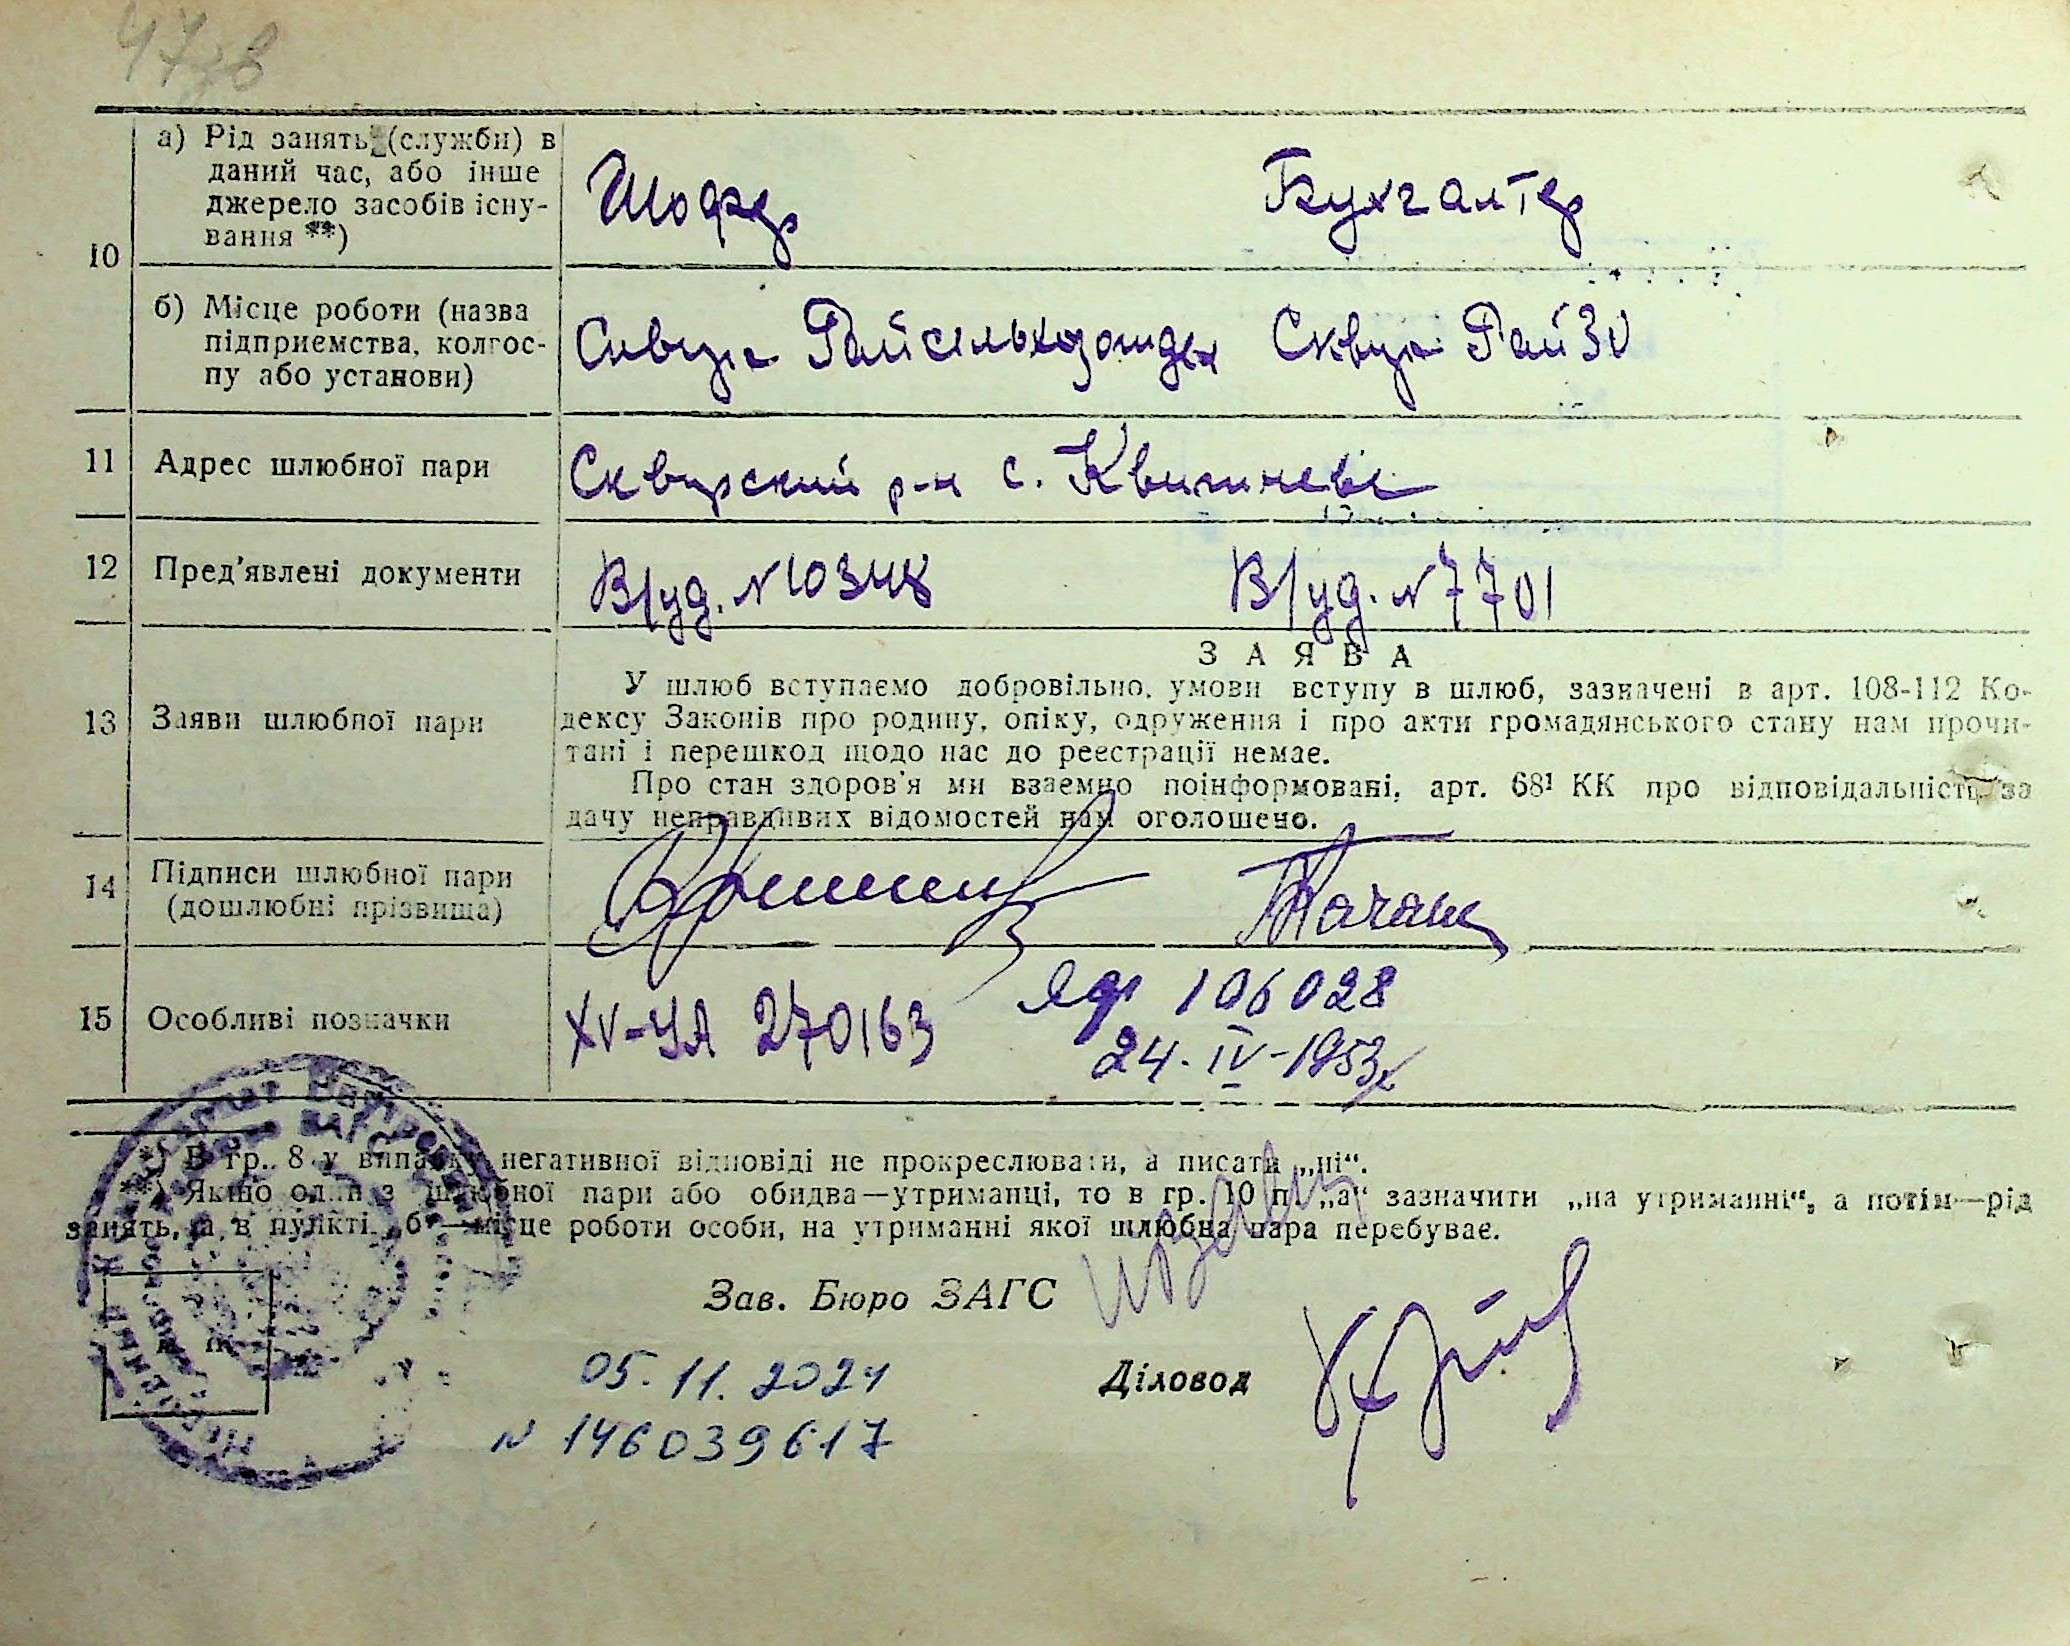 10
а) Рід занять (служби) в
даний час, або інше
джерело засобів існу-
вання **)
Шофер
Бухгалтер
б) Місце роботи (назва
підприємства, колгос-
пу або установи)
Сквира
Сквира РайЗО
11
Адрес шлюбної пари
Сквирский р-н с.
12
Пред'явлені документи
В/уд. N 10348
В/уд. N 7701
13
Заяви шлюбної пари
ЗАЯВА
У шлюб вступаємо добровільно, умови вступу в шлюб, зазначені в арт. 108-112 Ко-
дексу Законів про родину, опіку, одруження і про акти громадянського стану нам прочи-
тані і перешкод щодо нас до реєстрації немає.
Про стан здоров'я ми взаємно поінформовані, арт. 68¹ КК про відповідальність за
дачу неправдивих відомостей нам оголошено.
14
Підписи шлюбної пари
(дошлюбні прізвища)
15
Особливі позначки
XV-УА 270163
106028
24-IV-1953
*) В гр. 8 у випадку негативної відповіді не прокреслювати, а писати „ні“.
**) Якщо один з шлюбної пари або обидва—утриманці, то в гр. 10 п. „а“ зазначити „на утриманні“, а потім—рід
занять, а в пункті „б“—місце роботи особи, на утриманні якої шлюбна пара перебуває.
Зав. Бюро ЗАГС
Діловод
05.11.2021
N 146039617